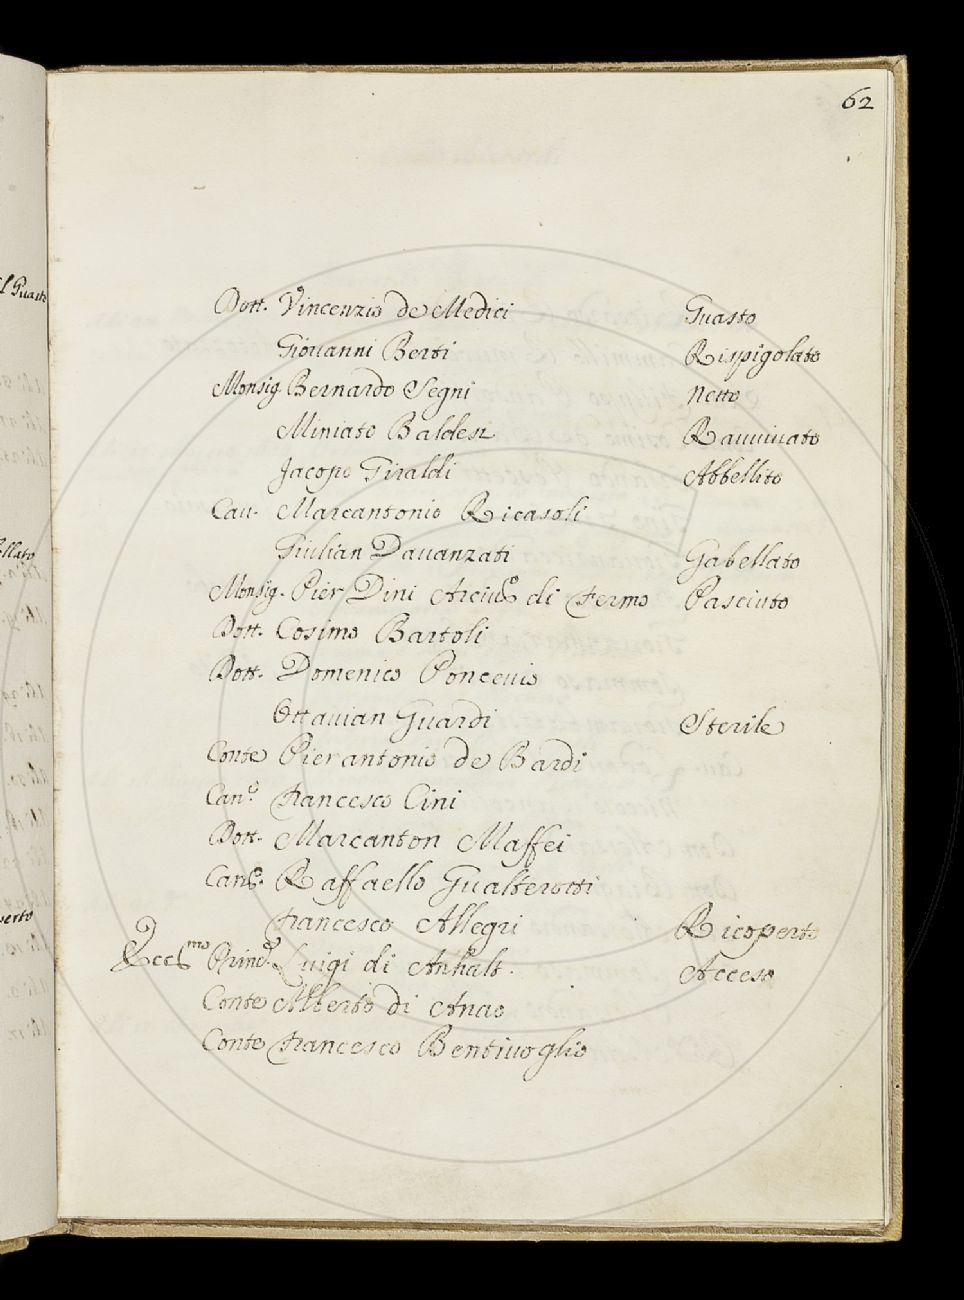 62
Dott. Vincenzio de Medici Guasto
Giouanni Berti Rispigolato
Monsig. Bernardo Segni Netto
Miniato Baldesi Rauuiuato
Jacopo Giraldi Abbellito
Cau. Marcantonio Ricasoli
Giulian Dauanzati Gabellato
Monsig. Pier Dini Arciuo di Fermo Pasciuto
Dott. Cosimo Bartoli
Dott. Domenico Ponceuio
Ottauian Guardi Sterile
Conte Pierantonio de Bardi
Can.o Francesco Cini
Dott. Marcanton Maffei
Can.co Raffaello Gualterotti
Francesco Allegri Ricoperto
Eccsmo Princ.e Luigi di Anhalt. Acceso
Conte Alberto di Anao
Conte Francesco Bentiuoglio